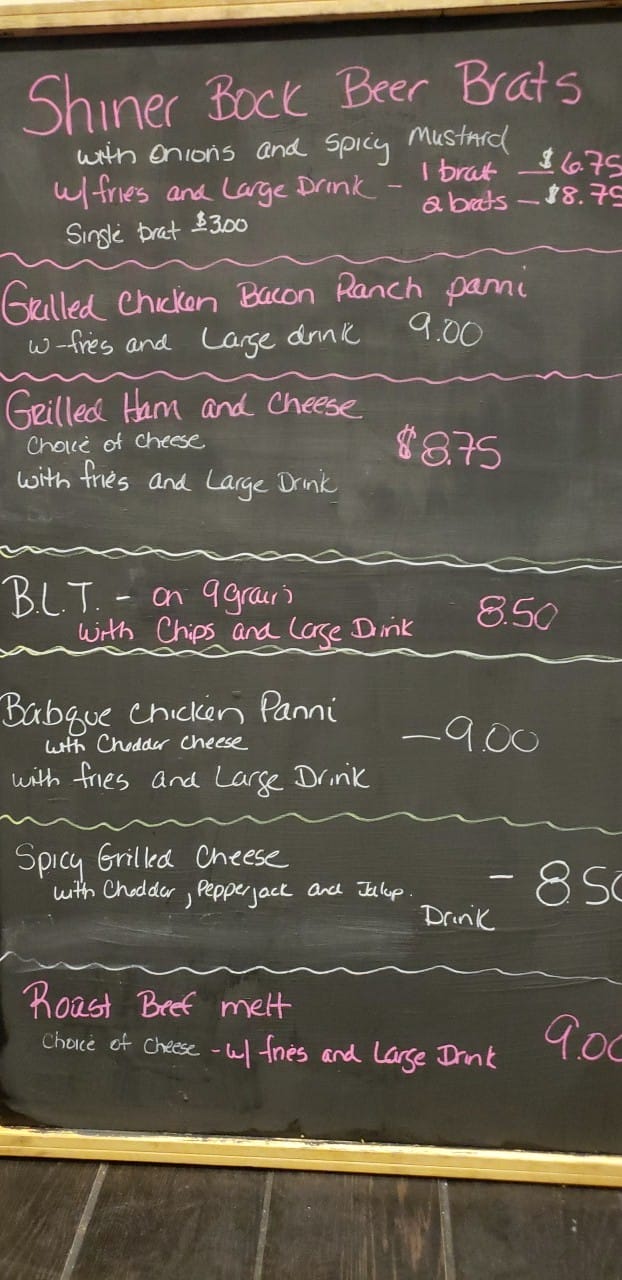 Shiner Bock Beer Brats
with onions and spicy Mustard
w/ fries and Large Drink - 1 brat — $6.75
2 brats — $8.75
Single brat $3.00
Grilled Chicken Bacon Ranch panni
w-fries and Large drink 9.00
Grilled Ham and Cheese
Choice of Cheese $8.75
with fries and Large Drink
B.L.T. - on 9 grain 8.50
with Chips and Large Drink
Babque Chicken Panni
with Cheddar Cheese - 9.00
with fries and Large Drink
Spicy Grilled Cheese - 8.50
with Cheddar, Pepperjack and Jalap.
Drink
Roast Beef melt 9.00
Choice of Cheese - w/ fries and Large Drink